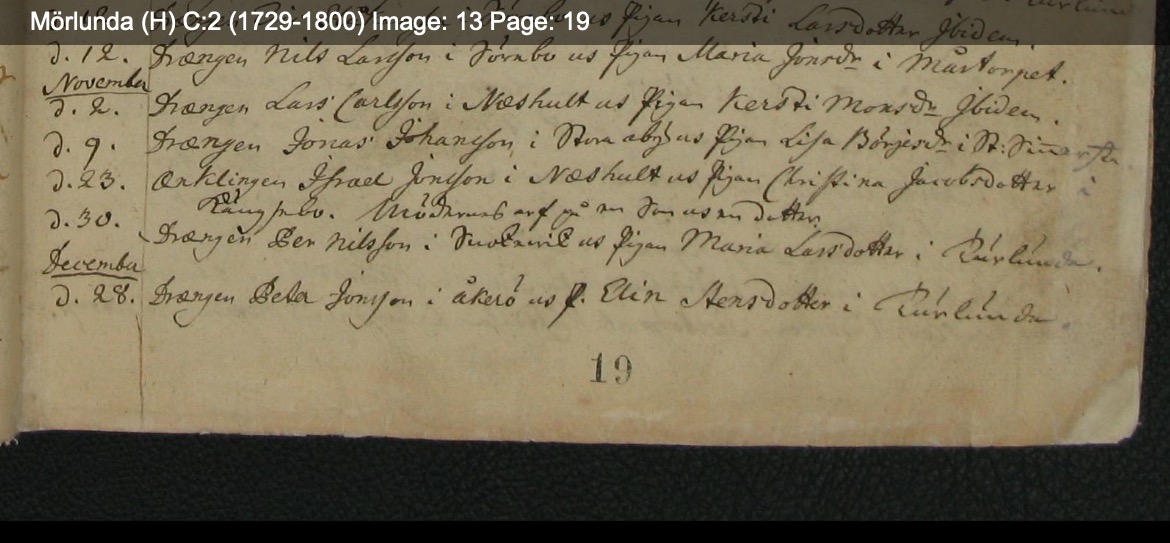 Mörlunda (H) C:2 (1729-1800) Image: 13 Page: 19
Pigan Kersti Larsdotter Jbidem.
d. 12. Drængen Nils Larsson i Sörnbo us Pigan Maria Jonsdr i Mårtorpet.
November
d. 2. Drængen Lars Carlsson i Næshult us Pigan Kersti Monsdr Jbidem.
d. 9. Drængen Jonas Johansson i Stora abÿ us Pigan Lisa Börjesdr i St:
d. 23. Ænklingen Jsrael Jonsson i Næshult us Pigan Christina Jacobsdotter i
Möderns arf på en Son us en dotter.
d. 30. Drængen Per Nilsson i us Pigan Maria Larsdotter i Rúrlúnda.
December
d. 28. Drængen Peter Jonsson i åkerö us P. Elin Stensdotter i Rúrlúnda.
19